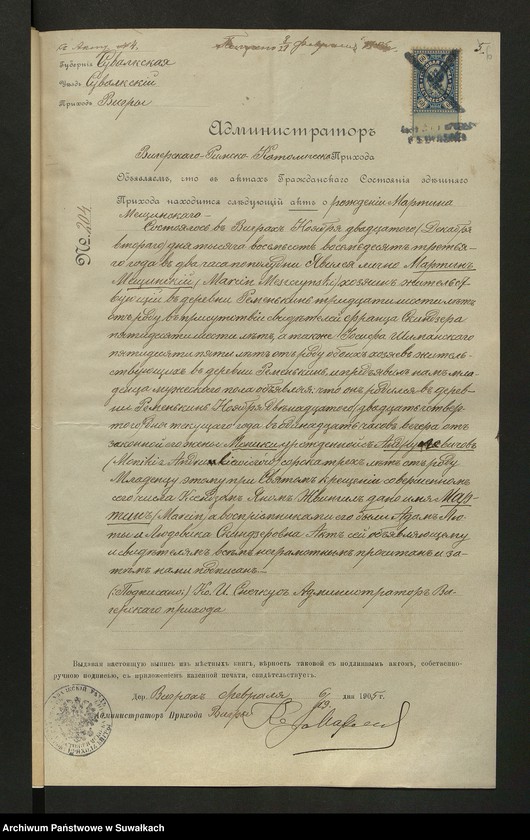 Къ Акту № 8.
Губернія Сувалкская
Уѣздъ Сувалкскій
Приходъ Вигры
Администраторъ
Вигерскаго Римско-Католическ. Прихода
Объявляемъ, что въ актахъ Гражданскаго Состоянія здѣшняго
Прихода находится слѣдующій актъ о рожденіи Мартина
Мещинскаго
No. 204
Состоялось въ Виграхъ Ноября двадцатаго /Декабря
втораго/ дня тысяча восемьсотъ восемьдесятъ третья-
го года въ два часа пополудни. Явился лично Мартинъ
Мещинскій / Marcin Mieszczyński / хозяинъ жительст-
вующій въ деревни Ременькинь тридцати шести лѣтъ
отъ роду въ присутствіи свидѣтелей Франца Скиндзера
пятидесяти шести лѣтъ, а также Іосифа Шиманскаго
пятидесяти пяти лѣтъ отъ роду обоихъ хозяевъ житель-
ствующихъ въ деревни Ременькинь, и предъявилъ намъ мла-
денца мужескаго пола объявляя: что онъ родился въ дерев-
ни Ременькинь Ноября двенадцатаго / двадцать четвер-
таго / дня текущаго года въ одинадцать часовъ вечера отъ
законной его жены Моники урожденной Андрукевичовъ
/ Moniki Andrukiewiczów / сорока трехъ лѣтъ отъ роду
Младенцу этому при Святомъ Крещеніи совершенномъ
сего числа Ксендзомъ Яномъ Жвингилъ дано имя Мар-
тинъ / Marcin / а воспріемниками его были Адамъ Лю-
ты и Людовика Скиндзеровна. Актъ сей объявляющему
и свидѣтелямъ всѣмъ неграмотнымъ прочитанъ и за-
тѣмъ нами подписанъ.
(Подписано:) Кс. И. Снопкусъ Администраторъ Ви-
герскаго прихода
Выдавая настоящую выпись изъ мѣстныхъ книгъ, вѣрность таковой съ подлиннымъ актомъ, собственно-
ручною подписью, съ приложеніемъ казенной печати, свидѣтельствуетъ.
Дер. Виграхъ Февраля 6/19 дня 1905 г.
Администраторъ Прихода Вигры
Archiwum Państwowe w Suwałkach